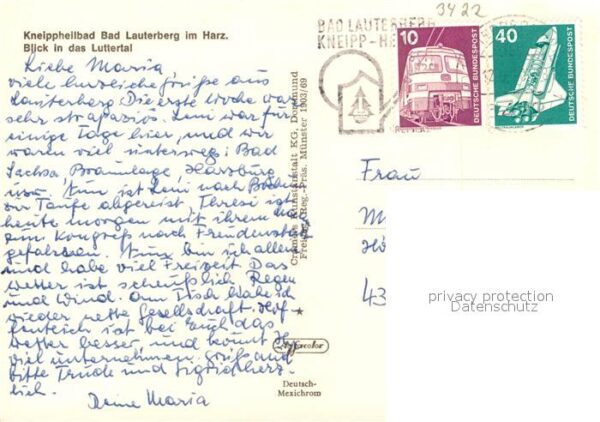 Kneippheilbad Bad Lauterberg im Harz.
Blick in das Luttertal
Liebe Maria,
viele herzliche Grüße aus
Lauterberg. Die erste Woche war
sehr strapaziös. war für
einige Tage hier, und wir
waren viel unterwegs: Bad
Sachsa Braunlage, Harzburg
usw. Nun ist nach
zur Taufe abgereist Theresi ist
heute morgen mit ihrem
zum Kongreß nach Freudenstadt
gefahren. Nun bin ich allein
und habe viel Freizeit Das
Wetter ist scheußlich Regen
und Wind. Am Tisch habe ich
wieder nette Gesellschaft. Hof-
fentlich ist bei Euch das
Wetter besser, und könnt Ihr
viel unternehmen. Grüß auch
bitte Trude und Sigrid herz-
lich.
Deine Maria
Cramers Kunstanstalt KG, Dortmund
Freigeg. Reg.-Präs. Münster
color
Deutsch-
Mexichrom
3422
BAD LAUTERBERG
KNEIPP-HE
10
DEUTSCHE BUNDESPOST
40
DEUTSCHE BUNDESPOST
Frau
M
43
privacy protection
Datenschutz